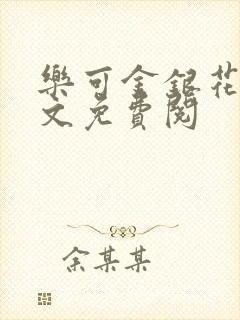 樂可金銀花
文免費閱
余某某